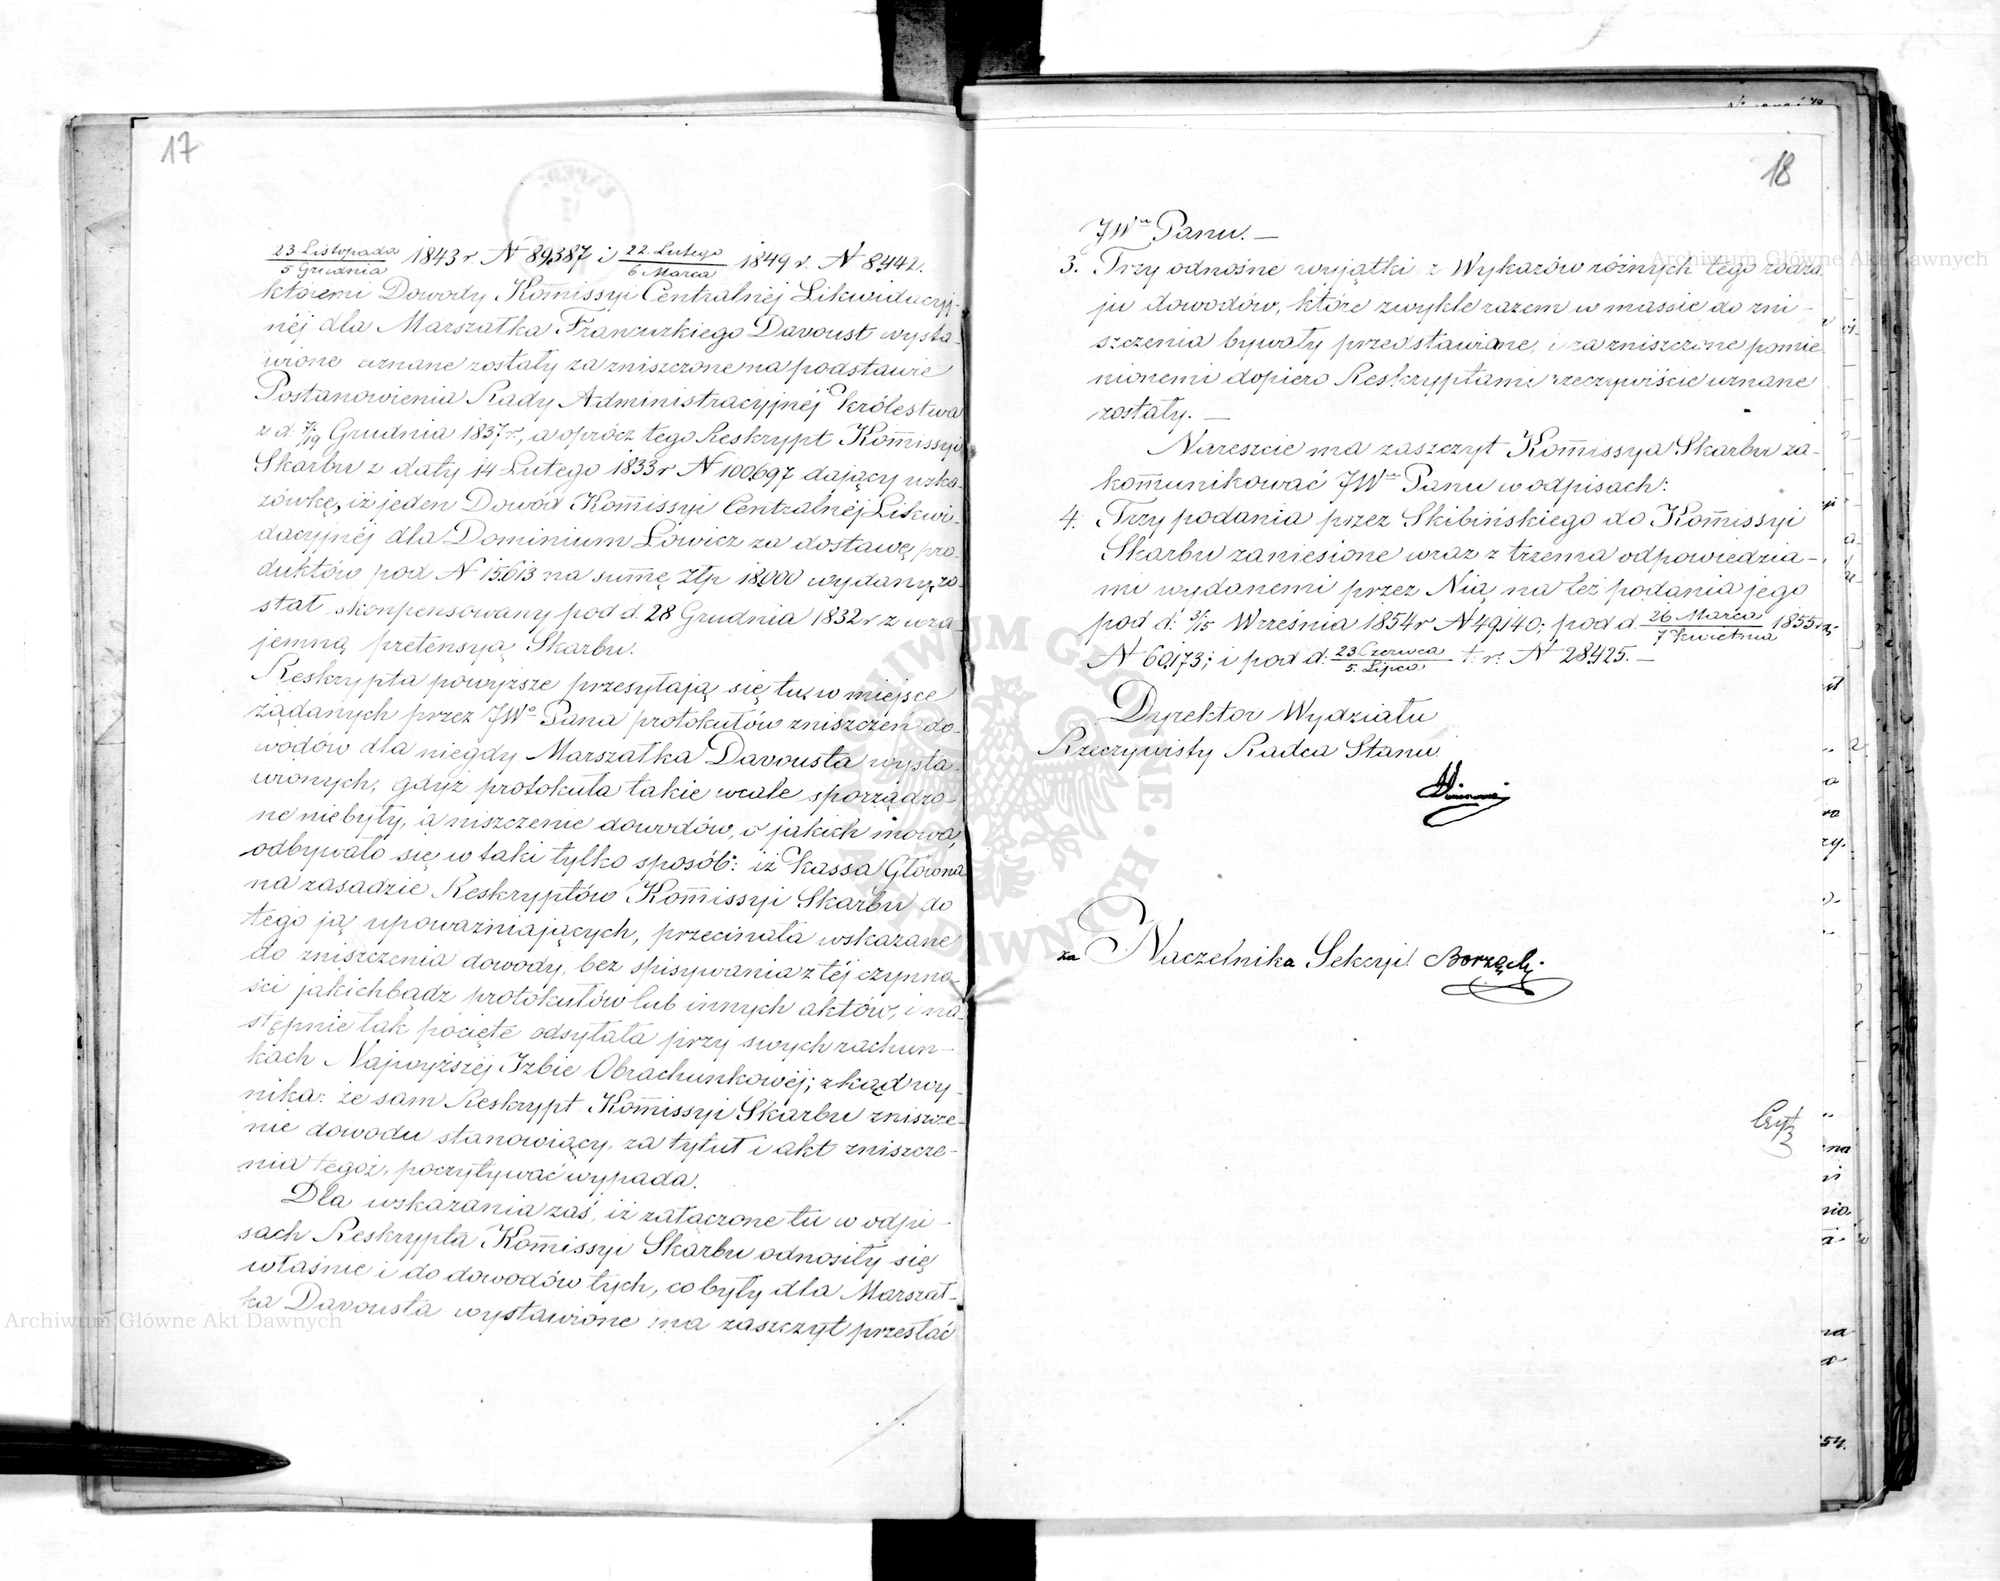 17
23 Listopada / 5 Grudnia 1843 r. N 89387 i 22 Lutego / 6 Marca 1849 r. N 8442.
któremi Dowody Kom̄issyi Centralnéj Likwidacyj-
néj dla Marszałka Francuzkiego Davoust wysta-
wione uznane zostały za zniszczone na podstawie
Postanowienia Rady Administracyjnéj Królestwa
z d. 7/19 Grudnia 1837 r., a oprócz tego Reskrypt Kom̄issyi
Skarbu z daty 14 Lutego 1833 r N 100697 dający wska-
zówkę, iż jeden Dowód Kom̄issyi Centralnéj Likwi-
dacyjnéj dla Dominium Łowicz za dostawę pro-
duktów pod N 15613 na sum̄ę Złp 18000 wydany, zo-
stał skonpensowany pod d. 28 Grudnia 1832 r z wza-
jemną pretensyą Skarbu.
Reskrypta powyższe przesyłają się tu w miejsce
żądanych przez JWo Pana protokułów zniszczeń do-
wodów dla niegdy Marszałka Davousta wysta-
wionych, gdyż protokuła takie wcale sporządzo-
ne niebyły, a niszczenie dowodów, o jakich mowa,
odbywało się w taki tylko sposób: iż Kassa Główna
na zasadzie Reskryptów Kom̄issyi Skarbu do
tego ją upoważniających, przecinała wskazane
do zniszczenia dowody, bez spisywania z téj czynno-
ści jakichbądź protokułów lub innych aktów, i na-
stępnie tak pocięte odsyłała przy swych rachun-
kach Najwyższéj Izbie Obrachunkowéj; zkąd wy-
nika: że sam Reskrypt Kom̄issyi Skarbu zniszcze-
nie dowodu stanowiący, za tytuł i akt zniszcze-
nia tegoż, poczytywać wypada.
Dla wskazania zaś, iż załączone tu w odpi-
sach Reskrypta Kom̄issyi Skarbu odnosiły się
właśnie i do dowodów tych, co były dla Marszał-
ka Davousta wystawione ma zaszczyt przesłać
18
JWu Panu. —
3. Trzy odnośne wyjątki z Wykazów różnych tego rodza
ju dowodów, które zwykle razem w massie do zni-
szczenia bywały przedstawiane, i za zniszczone pomie
nionemi dopiero Reskryptami rzeczywiście uznane
zostały. —
Nareszcie ma zaszczyt Kom̄issya Skarbu za-
kom̄unikować JWu Panu w odpisach:
4. Trzy podania przez Skibińskiego do Kom̄issyi
Skarbu zaniesione wraz z trzema odpowiedzia-
mi wydanemi przez Nią na też podania jego
pod d: 3/15 Września 1854 r N 49140; pod d. 26 Marca / 7 Kwietnia 1855 r.
N 60173; i pod d: 23 Czerwca / 5. Lipca t. r. N 28425. —
Dyrektor Wydziału
Rzeczywisty Radca Stanu
za Naczelnika Sekcyi.
Archiwum Główne Akt Dawnych
Archiwum Główne Akt Dawnych
ARCHIWUM GŁÓWNE AKT DAWNYCH